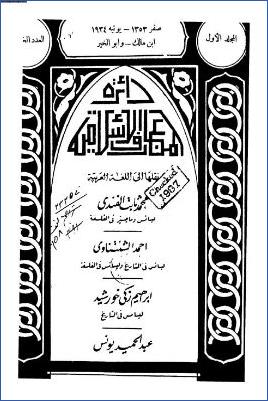 المجلد الأول
صفر ١٣٥٣ – يونيه ١٩٣٤
العدد
ابن مالك – وابو الخير
دائرة
المعارف الاسلامية
نقلها الى اللغة العربية
محمد ثابت الفندى
ليسانس وماجستير فى الفلسفة
احمد الشنتناوى
ليسانس فى التاريخ وليسانس فى الفلسفة
ابراهيم زكى خورشيد
ليسانس فى التاريخ
عبد الحميد يونس
1967